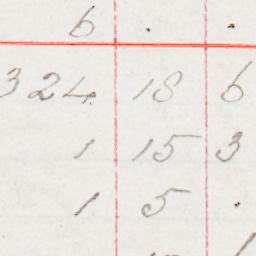 6 . .
324 18 6
1 15 3
1 5 .